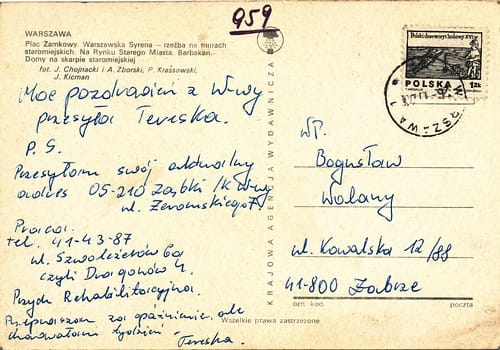 959
WARSZAWA
Plac Zamkowy. Warszawska Syrena – rzeźba na murach
staromiejskich. Na Rynku Starego Miasta. Barbakan.
Domy na skarpie staromiejskiej
fot. J. Chojnacki i A. Zborski, P. Krassowski,
J. Kicman
Moc pozdrowień z W-wy
przesyła Tereska.
P.S.
Przesyłam swój aktualny
adres 05-210 Ząbki /k W-wy
ul. Żeromskiego 7.
Praca:
tel. 41-43-87
ul. Szwoleżerów 6a
czyli Dragonów 4.
Przych Rehabilitacyjna.
Przepraszam za opóźnienie, ale
chorowałam tydzień
Tereska.
KRAJOWA AGENCJA WYDAWNICZA
Wszelkie prawa zastrzeżone
POLSKA 1zł
WARSZAWA
WP.
Bogusław
Walany
ul. Kowalska 12/88
41-800 Zabrze
ozn. kod.
poczta